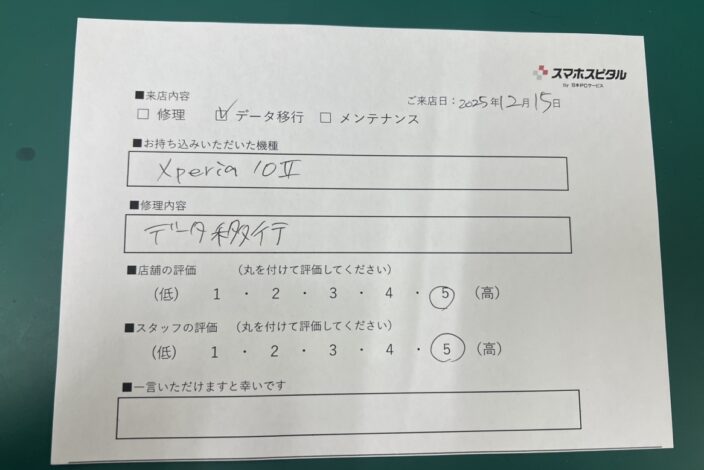 スマホスピタル
by 日本PCサービス
■来店内容
ご来店日：2025年12月15日
□ 修理 ☑ データ移行 □ メンテナンス
■お持ち込みいただいた機種
Xperia 10Ⅱ
■修理内容
データ移行
■店舗の評価 （丸を付けて評価してください）
（低） 1 ・ 2 ・ 3 ・ 4 ・ 5 （高）
■スタッフの評価 （丸を付けて評価してください）
（低） 1 ・ 2 ・ 3 ・ 4 ・ 5 （高）
■一言いただけますと幸いです